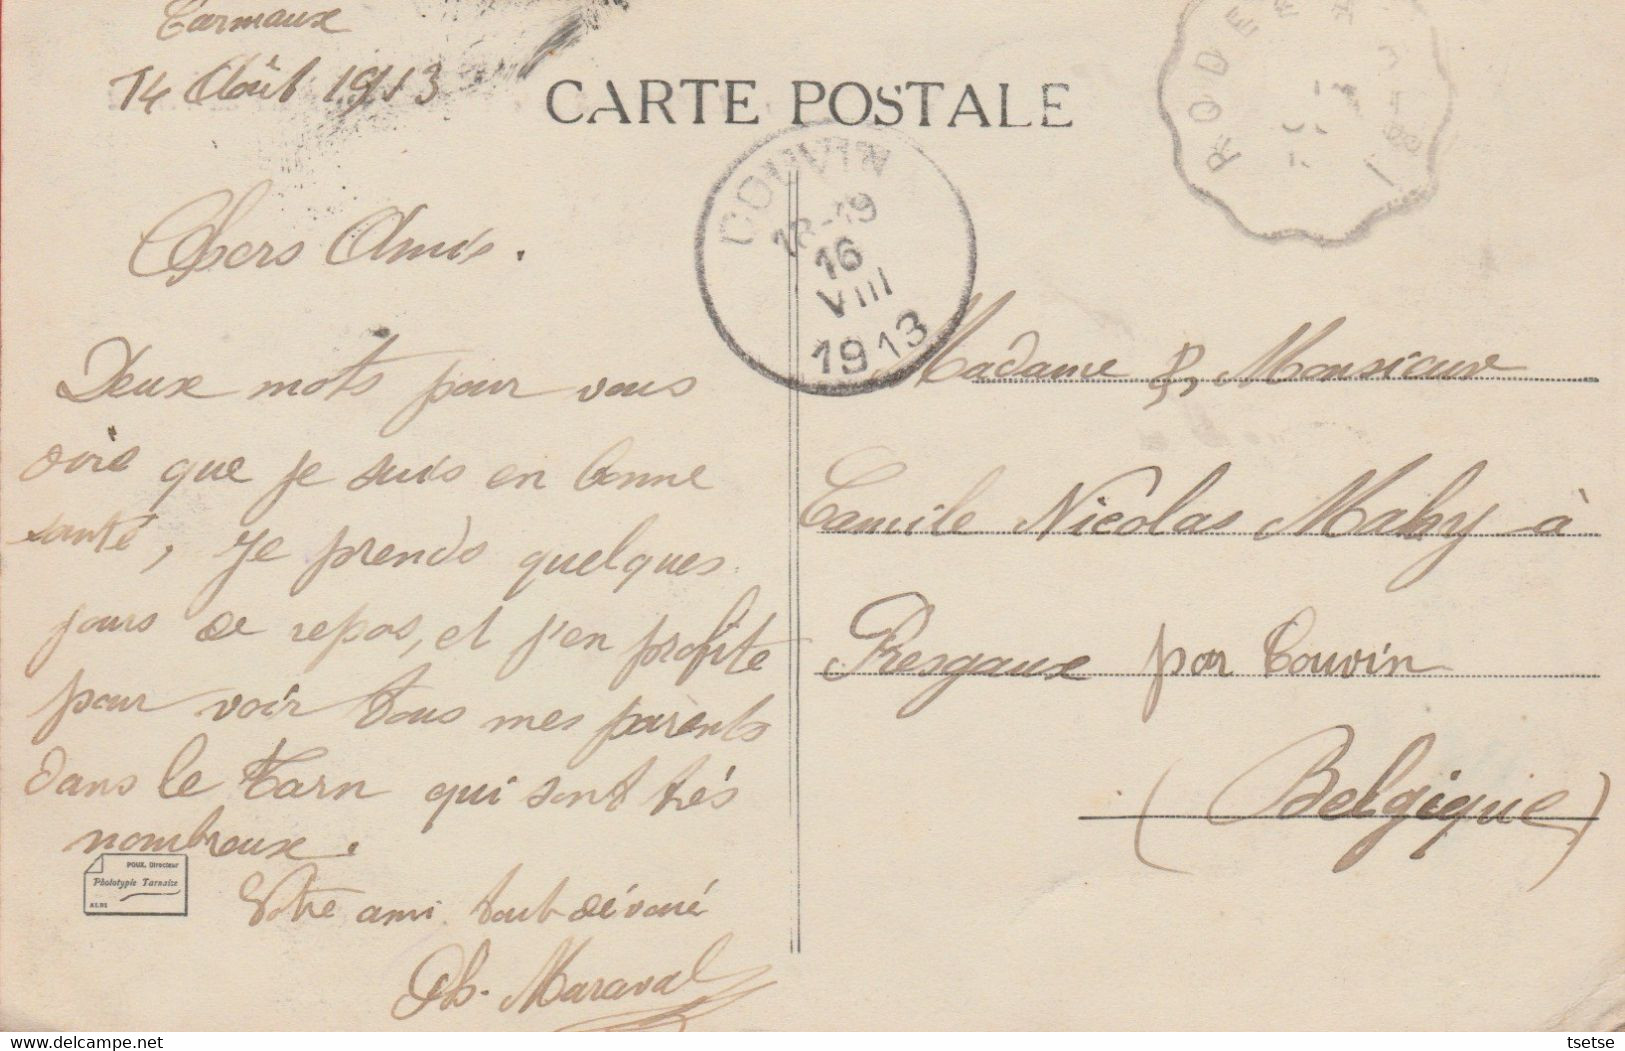 Carmaux
14 Août 1913
CARTE POSTALE
RODEZ A
COUVIN
18-19
16
VIII
1913
Chers Amis.
Deux mots pour vous
dire que je suis en bonne
santé, je prends quelques
jours de repos, et j'en profite
pour voir tous mes parents
dans le Tarn qui sont très
nombreux.
Votre ami tout dévoué
Ph. Maraval
Madame & Monsieur
Camile Nicolas Mahy à
Presgaux par Couvin
(Belgique)
POUX, Directeur
Phototypie Tarnaise
ALBI
delcampe.net
tsetse